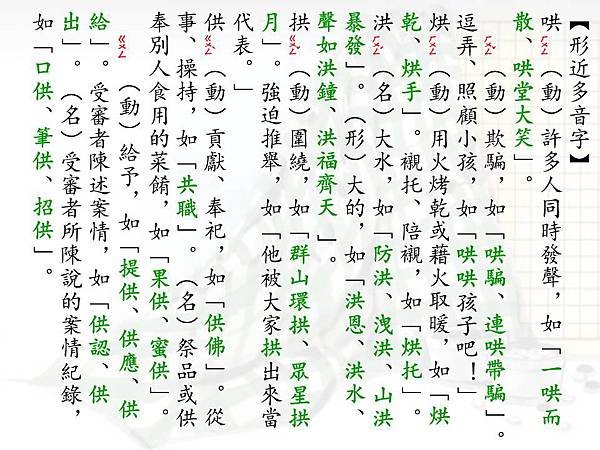 【形近多音字】
哄ㄏㄨㄥ（動）許多人同時發聲，如「一哄而
散、哄堂大笑」。
ㄏㄨㄥˇ（動）欺騙，如「哄騙、連哄帶騙」。
逗弄、照顧小孩，如「哄哄孩子吧！」
烘ㄏㄨㄥ（動）用火烤乾或藉火取暖，如「烘
乾、烘手」。襯托、陪襯，如「烘托」。
洪ㄏㄨㄥˊ（名）大水，如「防洪、洩洪、山洪
暴發」。（形）大的，如「洪恩、洪水、
聲如洪鐘、洪福齊天」。
拱ㄍㄨㄥˇ（動）圍繞，如「群山環拱、眾星拱
月」。強迫推舉，如「他被大家拱出來當
代表。」
供ㄍㄨㄥˋ（動）貢獻、奉祀，如「供佛」。從
事、操持，如「共職」。（名）祭品或供
奉別人食用的菜餚，如「果供、蜜供」。
ㄍㄨㄥ（動）給予，如「提供、供應、供
給」。受審者陳述案情，如「供認、供
出」。（名）受審者所陳說的案情紀錄，
如「口供、筆供、招供」。